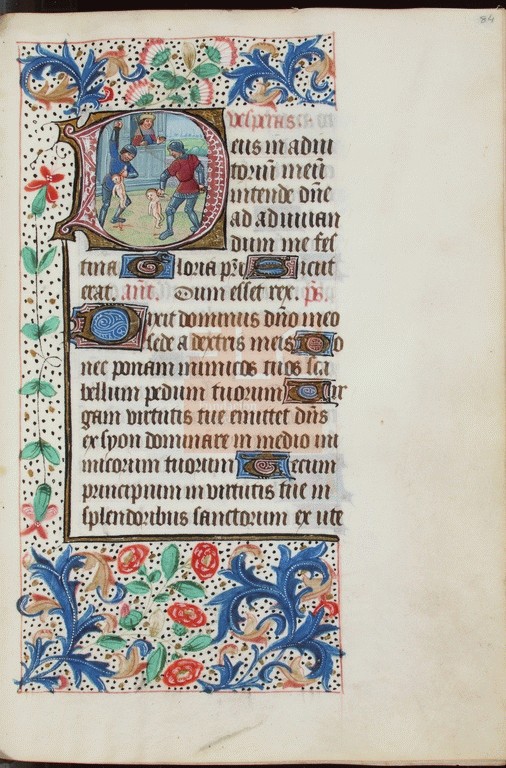 84
vesperas
Deus in adiu
toriū meū
intende dn̄e
ad adiuuan
dum me fes
tina Gloria pr̄i Sicut
erat. an̄t. Dum esset rex. p̄s.
Dixit dominus dn̄o meo
sede a dextris meis Do
nec ponam inimicos tuos sca
bellum pedum tuorum Vir
gam virtutis tue emittet dn̄s
ex syon dominare in medio ini
micorum tuorum Tecum
principium in virtutis tue in
splendoribus sanctorum ex ute